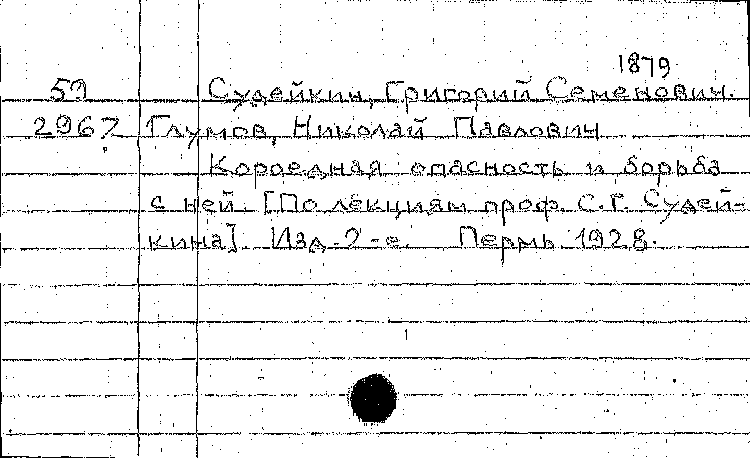 1879
59 Судейкин, Григорий Семенович.
2967 Глумов, Николай Павлович
Короедная опасность и борьба
с ней. [По лекциям проф. С.Г. Судей-
кина]. Изд. 2-е. Пермь 1928.